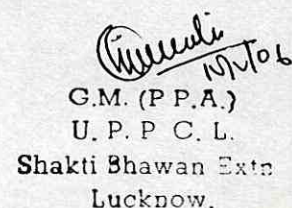 G.M. (P P.A.)
U. P. P C. L.
Shakti Bhawan Extn
Lucknow.